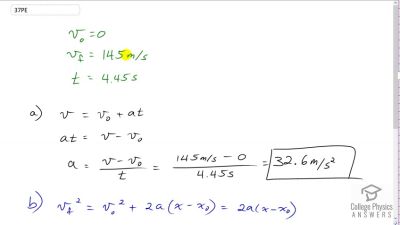 37PE
v₀ = 0
v_f = 145 m/s
t = 4.45 s
a) v = v₀ + at
at = v - v₀
a = (v - v₀)/t = (145 m/s - 0)/(4.45 s) = 32.6 m/s²
b) v_f² = v₀² + 2a(x - x₀) = 2a(x - x₀)
College Physics
ANSWERS